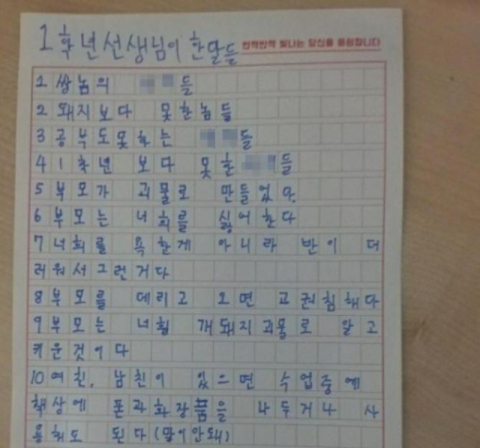 1학년선생님이 한말들
반짝반짝 빛나는 당신을 응원합니다
1 쌍놈의 들
2 돼지보다 못한놈들
3 공부도못하는 들
4 1학년 보다 못한 들
5 부모가 괴물로 만들었다.
6 부모는 너희를 싫어한다
7 너희를 욕한게 아니라 반이 더
러워서그런거다
8 부모를 데리고 오면 교권침해다
9 부모는 너흴 개돼지괴물로 알고
키운것이다
10 여친, 남친이 있으면 수업중에
책상에 폰과화장품을 나두거나 사
용해도 된다(말이안돼)